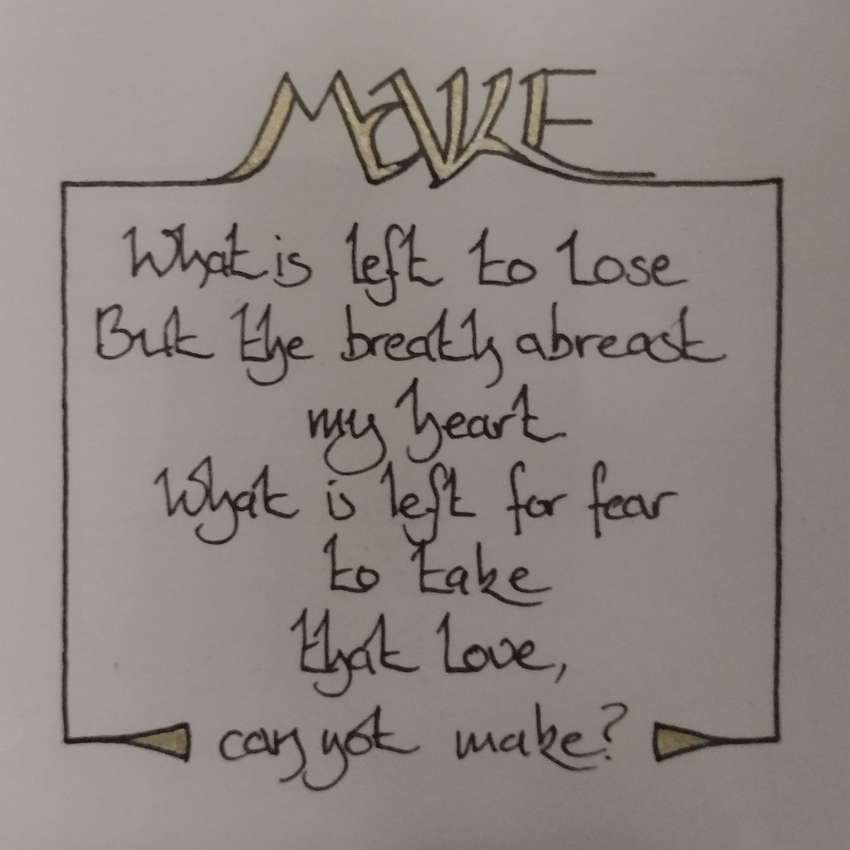 MAKE
What is left to lose
But the breath abreast
my heart
What is left for fear
to take
that love,
cannot make?